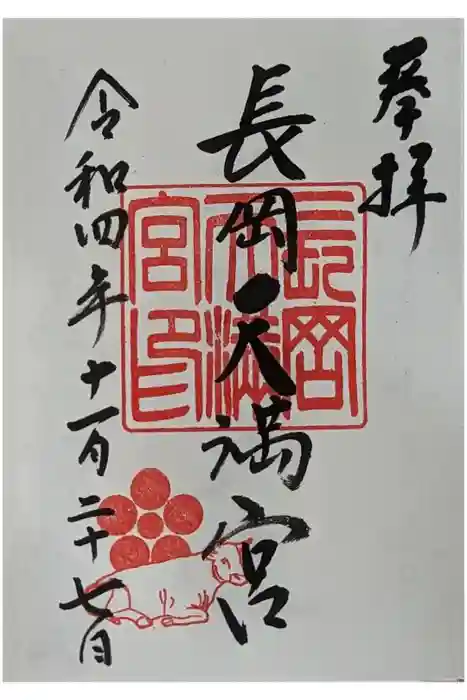 奉拝
長岡天満宮
長岡天満宮印
令和四年十一月二十七日